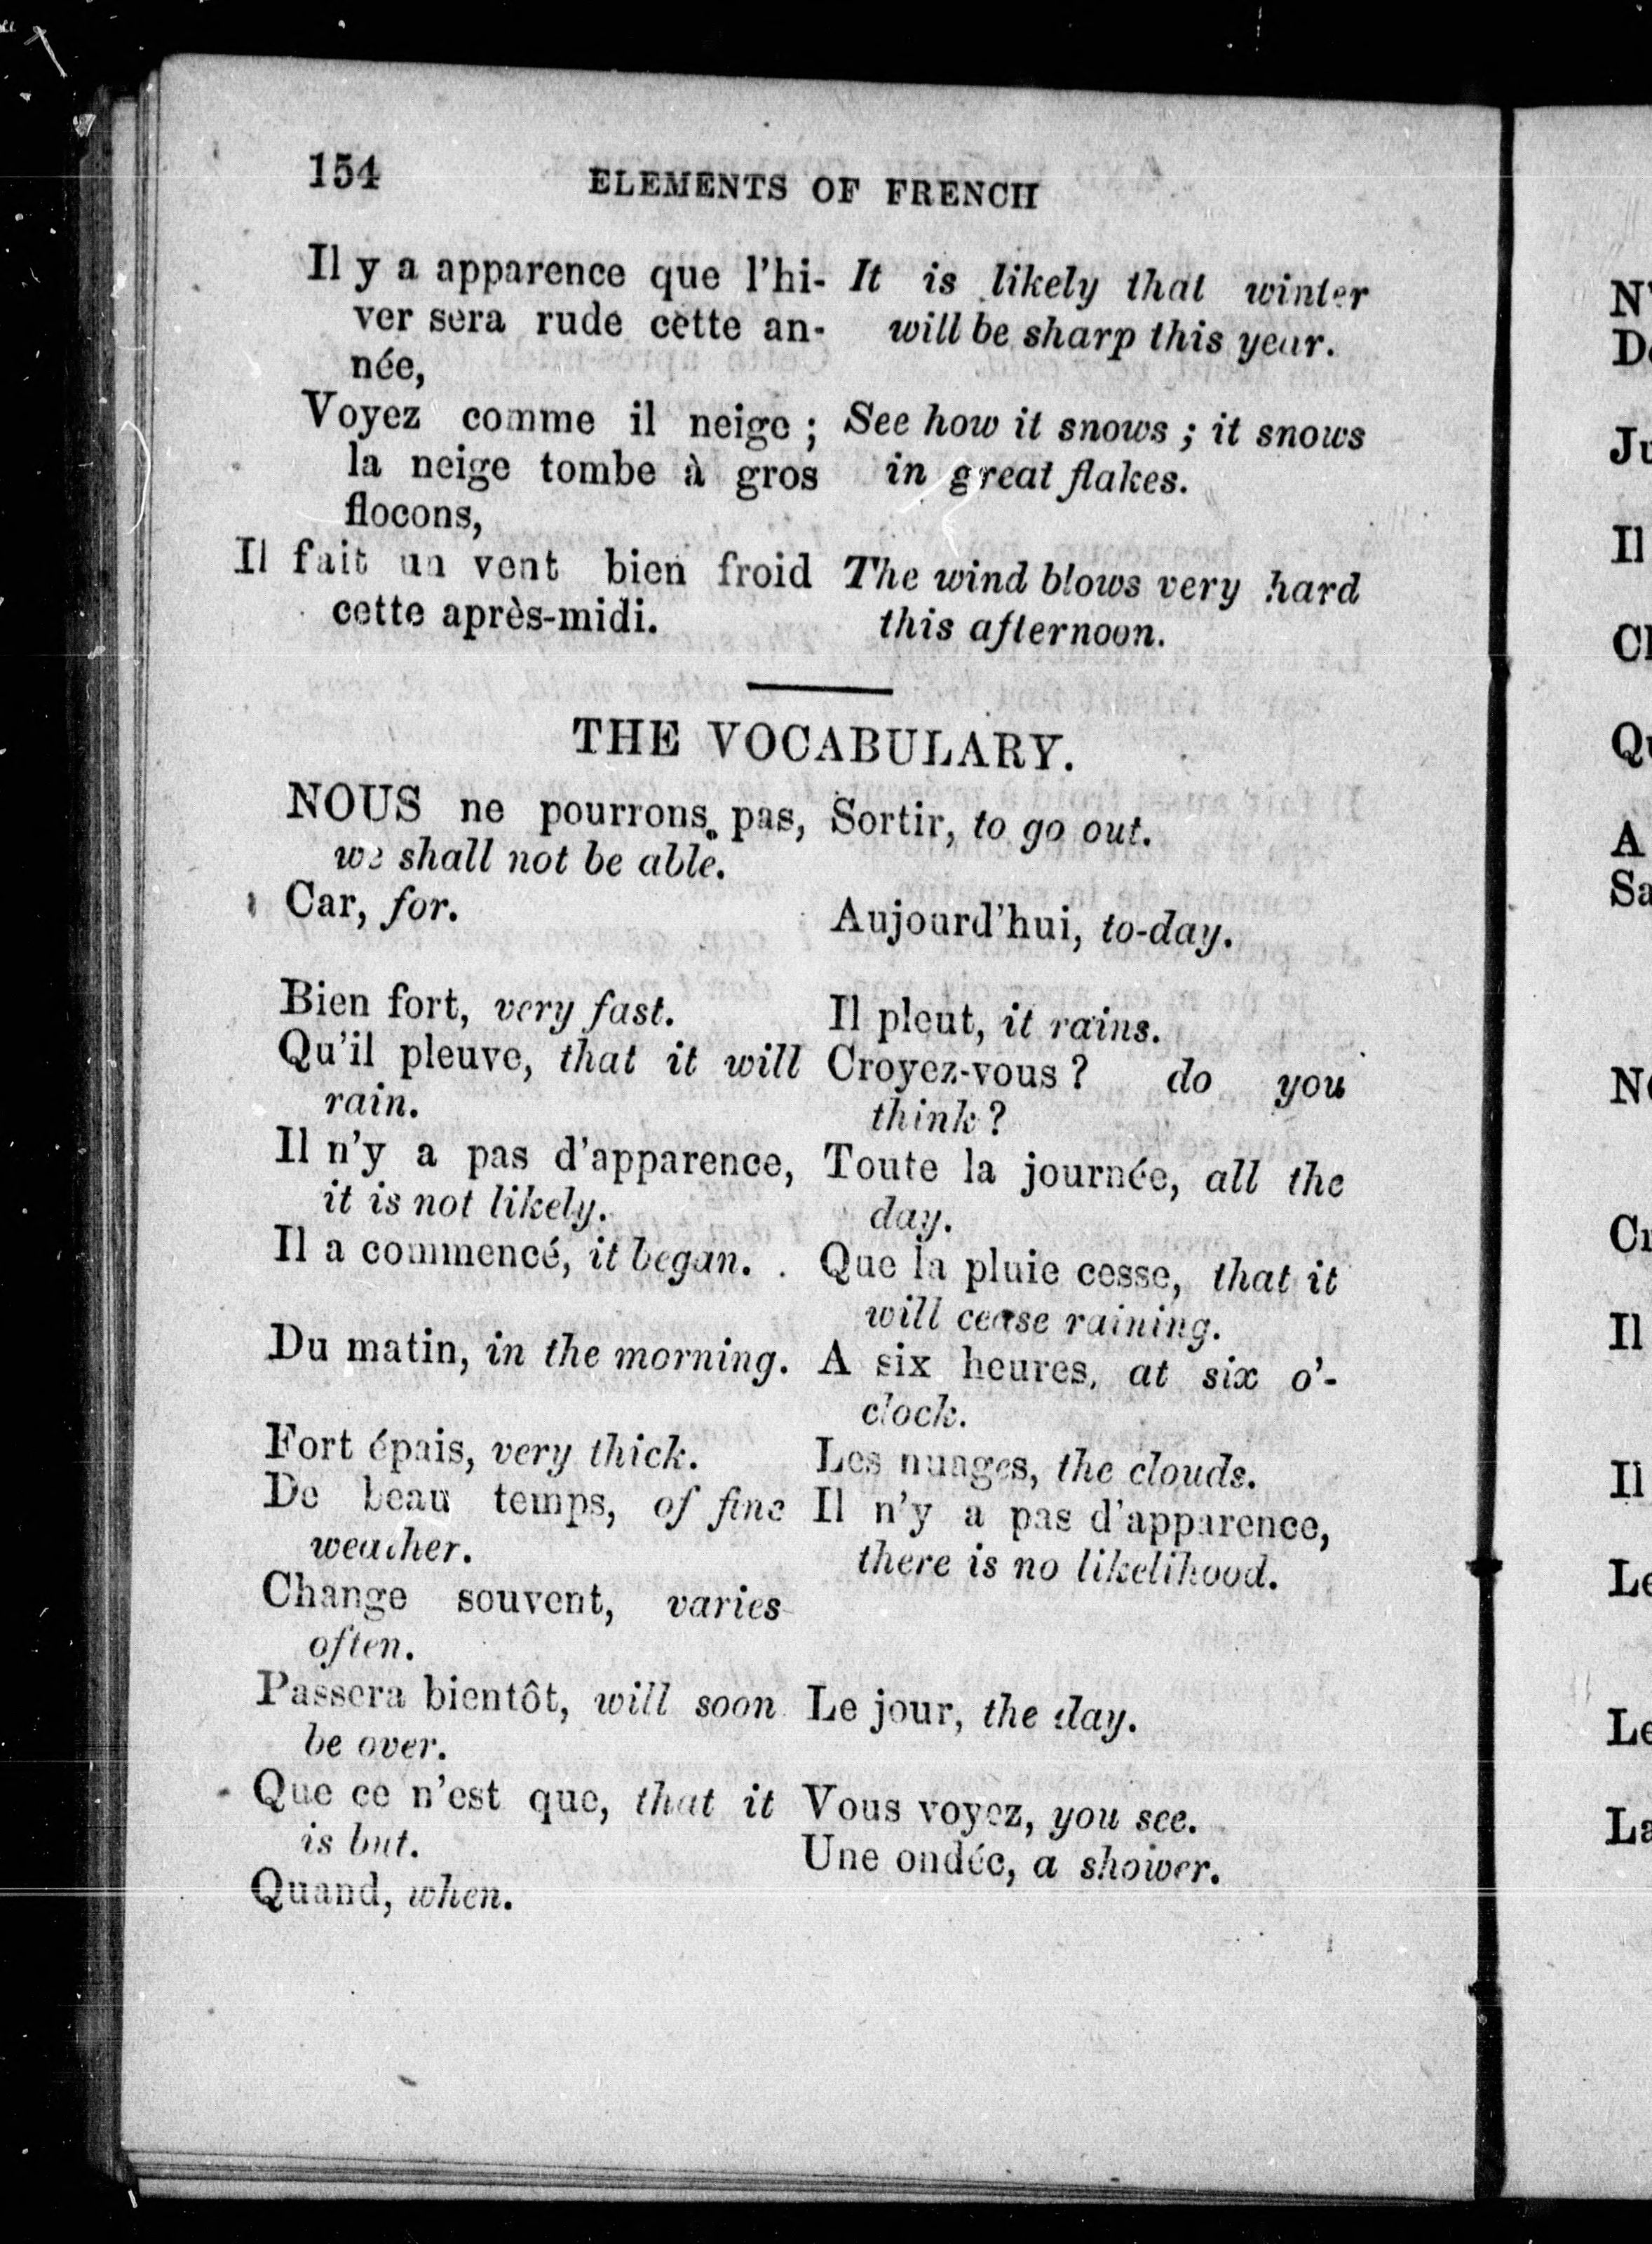 154 ELEMENTS OF FRENCH
Il y a apparence que l'hi-
ver sera rude cette an-
née,
It is likely that winter
will be sharp this year.
Voyez comme il neige ;
la neige tombe à gros
flocons,
See how it snows ; it snows
in great flakes.
Il fait un vent bien froid
cette après-midi.
The wind blows very hard
this afternoon.
THE VOCABULARY.
NOUS ne pourrons pas,
we shall not be able.
Sortir, to go out.
Car, for.
Aujourd'hui, to-day.
Bien fort, very fast.
Il pleut, it rains.
Qu'il pleuve, that it will
rain.
Croyez-vous ? do you
think ?
Il n'y a pas d'apparence,
it is not likely.
Toute la journée, all the
day.
Il a commencé, it began.
Que la pluie cesse, that it
will cease raining.
Du matin, in the morning.
A six heures, at six o'-
clock.
Fort épais, very thick.
Les nuages, the clouds.
De beau temps, of fine
weather.
Il n'y a pas d'apparence,
there is no likelihood.
Change souvent, varies
often.
Passera bientôt, will soon
be over.
Le jour, the day.
Que ce n'est que, that it
is but.
Vous voyez, you see.
Quand, when.
Une ondée, a shower.
N'
Ju
Il
Qu
A
Sa
Il
Il
Le
Le
La